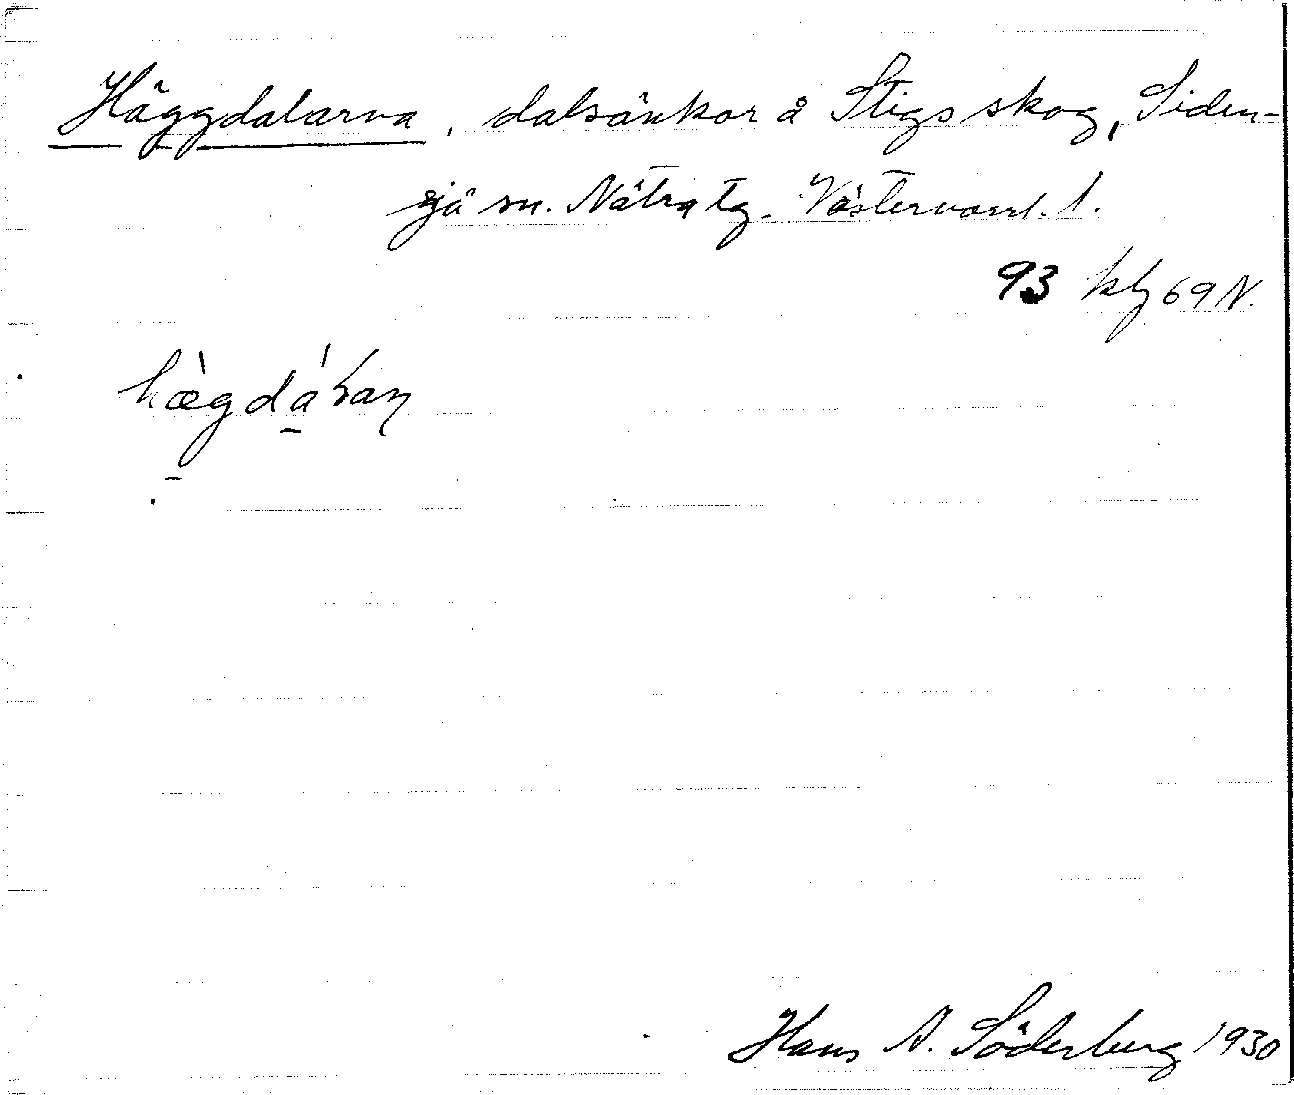 Häggdalarna, dalsänkor å Stigs skog, Siden-
sjö sn. Nätra tg. Västernorrl. l.
93 kbj 69 N.
hæ̀gdáɽaɲ
Hans A. Söderberg 1930